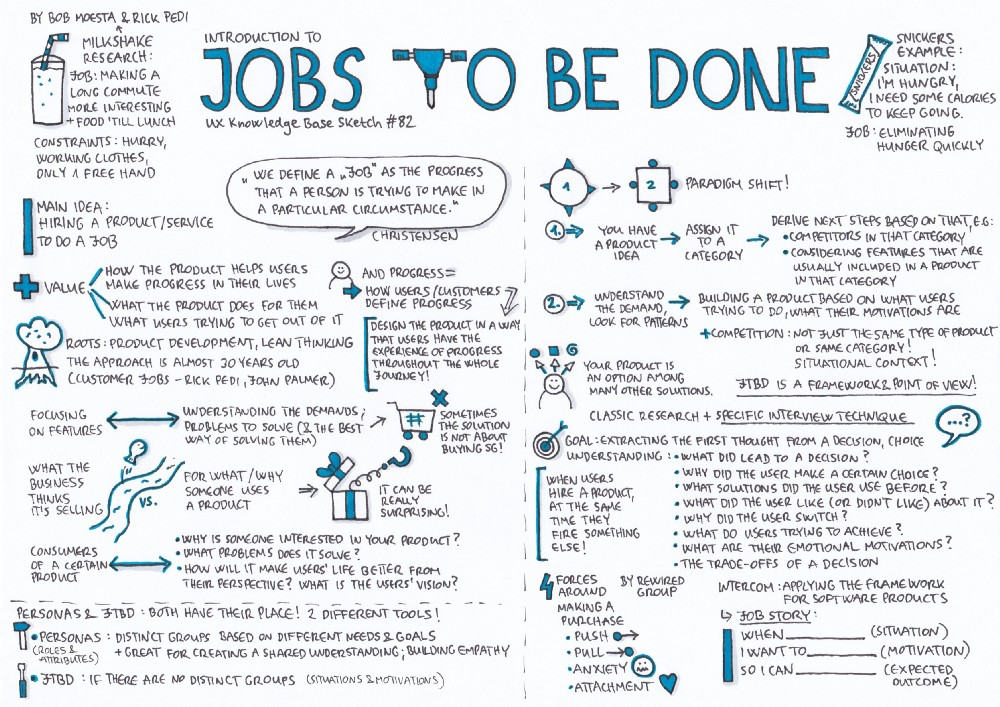 BY BOB MOESTA & RICK PEDI
MILKSHAKE
RESEARCH:
JOB: MAKING A
LONG COMMUTE
MORE INTERESTING
+ FOOD 'TILL LUNCH
CONSTRAINTS: HURRY,
WORKING CLOTHES,
ONLY 1 FREE HAND
INTRODUCTION TO
JOBS TO BE DONE
UX Knowledge Base Sketch #82
SNICKERS
SNICKERS
EXAMPLE:
SITUATION:
I'M HUNGRY,
I NEED SOME CALORIES
TO KEEP GOING.
JOB: ELIMINATING
HUNGER QUICKLY
„WE DEFINE A „JOB" AS THE PROGRESS
THAT A PERSON IS TRYING TO MAKE IN
A PARTICULAR CIRCUMSTANCE."
CHRISTENSEN
MAIN IDEA:
HIRING A PRODUCT/SERVICE
TO DO A JOB
+ VALUE
HOW THE PRODUCT HELPS USERS
MAKE PROGRESS IN THEIR LIVES
WHAT THE PRODUCT DOES FOR THEM
WHAT USERS TRYING TO GET OUT OF IT
AND PROGRESS =
HOW USERS/CUSTOMERS
DEFINE PROGRESS
DESIGN THE PRODUCT IN A WAY
THAT USERS HAVE THE
EXPERIENCE OF PROGRESS
THROUGHOUT THE WHOLE
JOURNEY!
ROOTS: PRODUCT DEVELOPMENT, LEAN THINKING
THE APPROACH IS ALMOST 30 YEARS OLD
(CUSTOMER JOBS - RICK PEDI, JOHN PALMER)
FOCUSING
ON FEATURES
UNDERSTANDING THE DEMANDS;
PROBLEMS TO SOLVE (& THE BEST
WAY OF SOLVING THEM)
#
SOMETIMES
THE SOLUTION
IS NOT ABOUT
BUYING SG!
WHAT THE
BUSINESS
THINKS
IT'S SELLING
VS.
FOR WHAT/WHY
SOMEONE USES
A PRODUCT
IT CAN BE
REALLY
SURPRISING!
CONSUMERS
OF A CERTAIN
PRODUCT
• WHY IS SOMEONE INTERESTED IN YOUR PRODUCT?
• WHAT PROBLEMS DOES IT SOLVE?
• HOW WILL IT MAKE USERS' LIFE BETTER FROM
THEIR PERSPECTIVE? WHAT IS THE USERS' VISION?
PERSONAS & JTBD: BOTH HAVE THEIR PLACE! 2 DIFFERENT TOOLS!
• PERSONAS: DISTINCT GROUPS BASED ON DIFFERENT NEEDS & GOALS
(ROLES &
ATTRIBUTES)
+ GREAT FOR CREATING A SHARED UNDERSTANDING; BUILDING EMPATHY
• JTBD: IF THERE ARE NO DISTINCT GROUPS (SITUATIONS & MOTIVATIONS)
1 → 2 PARADIGM SHIFT!
1. YOU HAVE
A PRODUCT
IDEA
ASSIGN IT
TO A
CATEGORY
DERIVE NEXT STEPS BASED ON THAT, E.G:
• COMPETITORS IN THAT CATEGORY
• CONSIDERING FEATURES THAT ARE
USUALLY INCLUDED IN A PRODUCT
IN THAT CATEGORY
2. UNDERSTAND
THE DEMAND,
LOOK FOR PATTERNS
BUILDING A PRODUCT BASED ON WHAT USERS
TRYING TO DO, WHAT THEIR MOTIVATIONS ARE
+ COMPETITION: NOT JUST THE SAME TYPE OF PRODUCT
OR SAME CATEGORY!
SITUATIONAL CONTEXT!
YOUR PRODUCT IS
AN OPTION AMONG
MANY OTHER SOLUTIONS.
JTBD IS A FRAMEWORK & POINT OF VIEW!
CLASSIC RESEARCH + SPECIFIC INTERVIEW TECHNIQUE
...?
GOAL: EXTRACTING THE FIRST THOUGHT FROM A DECISION, CHOICE
UNDERSTANDING: • WHAT DID LEAD TO A DECISION?
• WHY DID THE USER MAKE A CERTAIN CHOICE?
• WHAT SOLUTIONS DID THE USER USE BEFORE?
• WHAT DID THE USER LIKE (OR DIDN'T LIKE) ABOUT IT?
• WHY DID THE USER SWITCH?
• WHAT DO USERS TRYING TO ACHIEVE?
• WHAT ARE THEIR EMOTIONAL MOTIVATIONS?
• THE TRADE-OFFS OF A DECISION
WHEN USERS
HIRE A PRODUCT,
AT THE SAME
TIME THEY
FIRE SOMETHING
ELSE!
4 FORCES
AROUND
MAKING A
PURCHASE
BY REWIRED
GROUP
• PUSH
• PULL
• ANXIETY
• ATTACHMENT
INTERCOM: APPLYING THE FRAMEWORK
FOR SOFTWARE PRODUCTS
JOB STORY:
WHEN __________ (SITUATION)
I WANT TO __________ (MOTIVATION)
SO I CAN __________ (EXPECTED
OUTCOME)